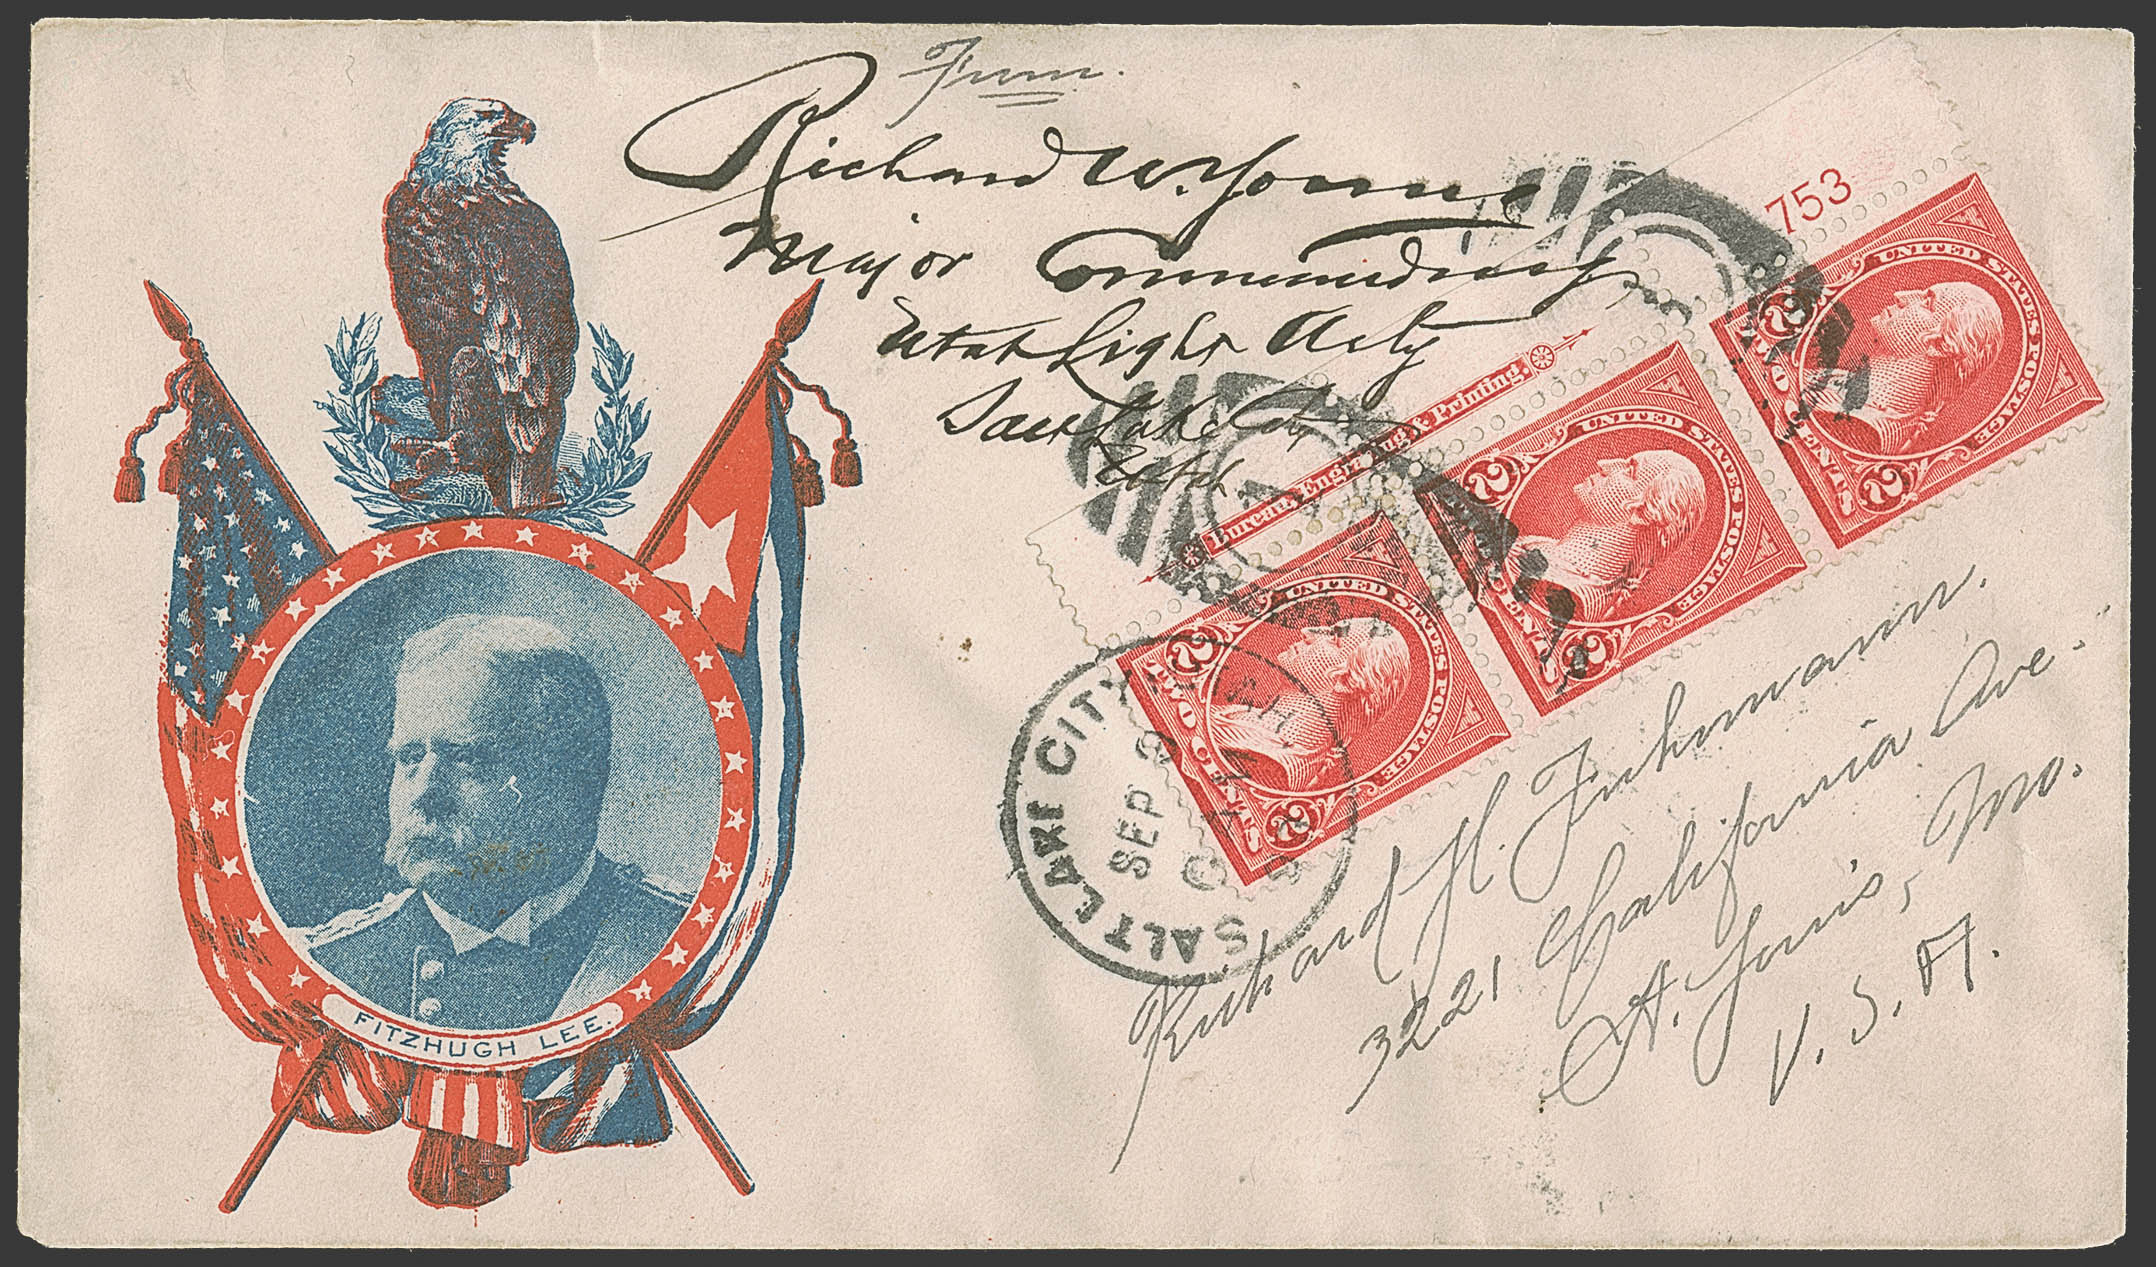 From.
Richard W. Young
Major Commanding
Utah Light Arty
Salt Lake City
Utah
753
Bureau, Engraving & Printing.
UNITED STATES POSTAGE
2 TWO CENTS 2
UNITED STATES POSTAGE
2 TWO CENTS 2
UNITED STATES POSTAGE
2 TWO CENTS 2
SALT LAKE CITY
SEP
Richard H. Fuhrmann.
3221 California Ave.
St. Louis, Mo.
U. S. A.
FITZHUGH LEE.